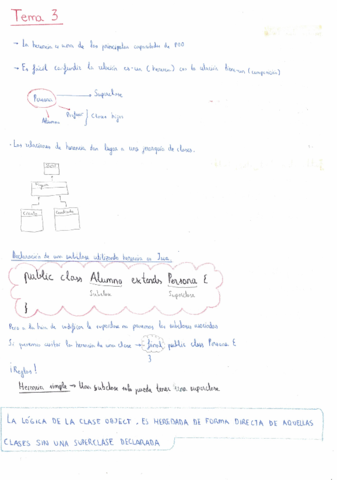 Tema 3
→ La herencia es una de las principales capacidades de POO
→ Es fácil confundir la relación es-un (herencia) con la relación tiene-un (composición)
Persona → Superclase
Profesor
Alumno
Clases hijas
· Las relaciones de herencia dan lugar a una jerarquía de clases.
Figura
Círculo
Cuadrado
Declaración de una subclase utilizando herencia en Java.
public class Alumno extends Persona {
Subclase Superclase
}
Pero a la hora de codificar la superclase no ponemos las subclases
Si queremos cortar la herencia de una clase → final public class Persona {
}
¡Reglas!
Herencia simple → Una subclase solo puede tener una superclase
LA LÓGICA DE LA CLASE OBJECT, ES HEREDADA DE FORMA DIRECTA DE AQUELLAS
CLASES SIN UNA SUPERCLASE DECLARADA